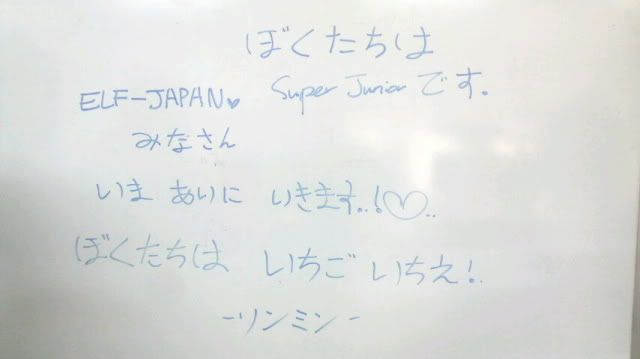 ぼくたちは
Super Juniorです。
ELF-JAPAN♥
みなさん
いま あいに いきます..!♡..
ぼくたちは いちご いちえ!
-リンミン-